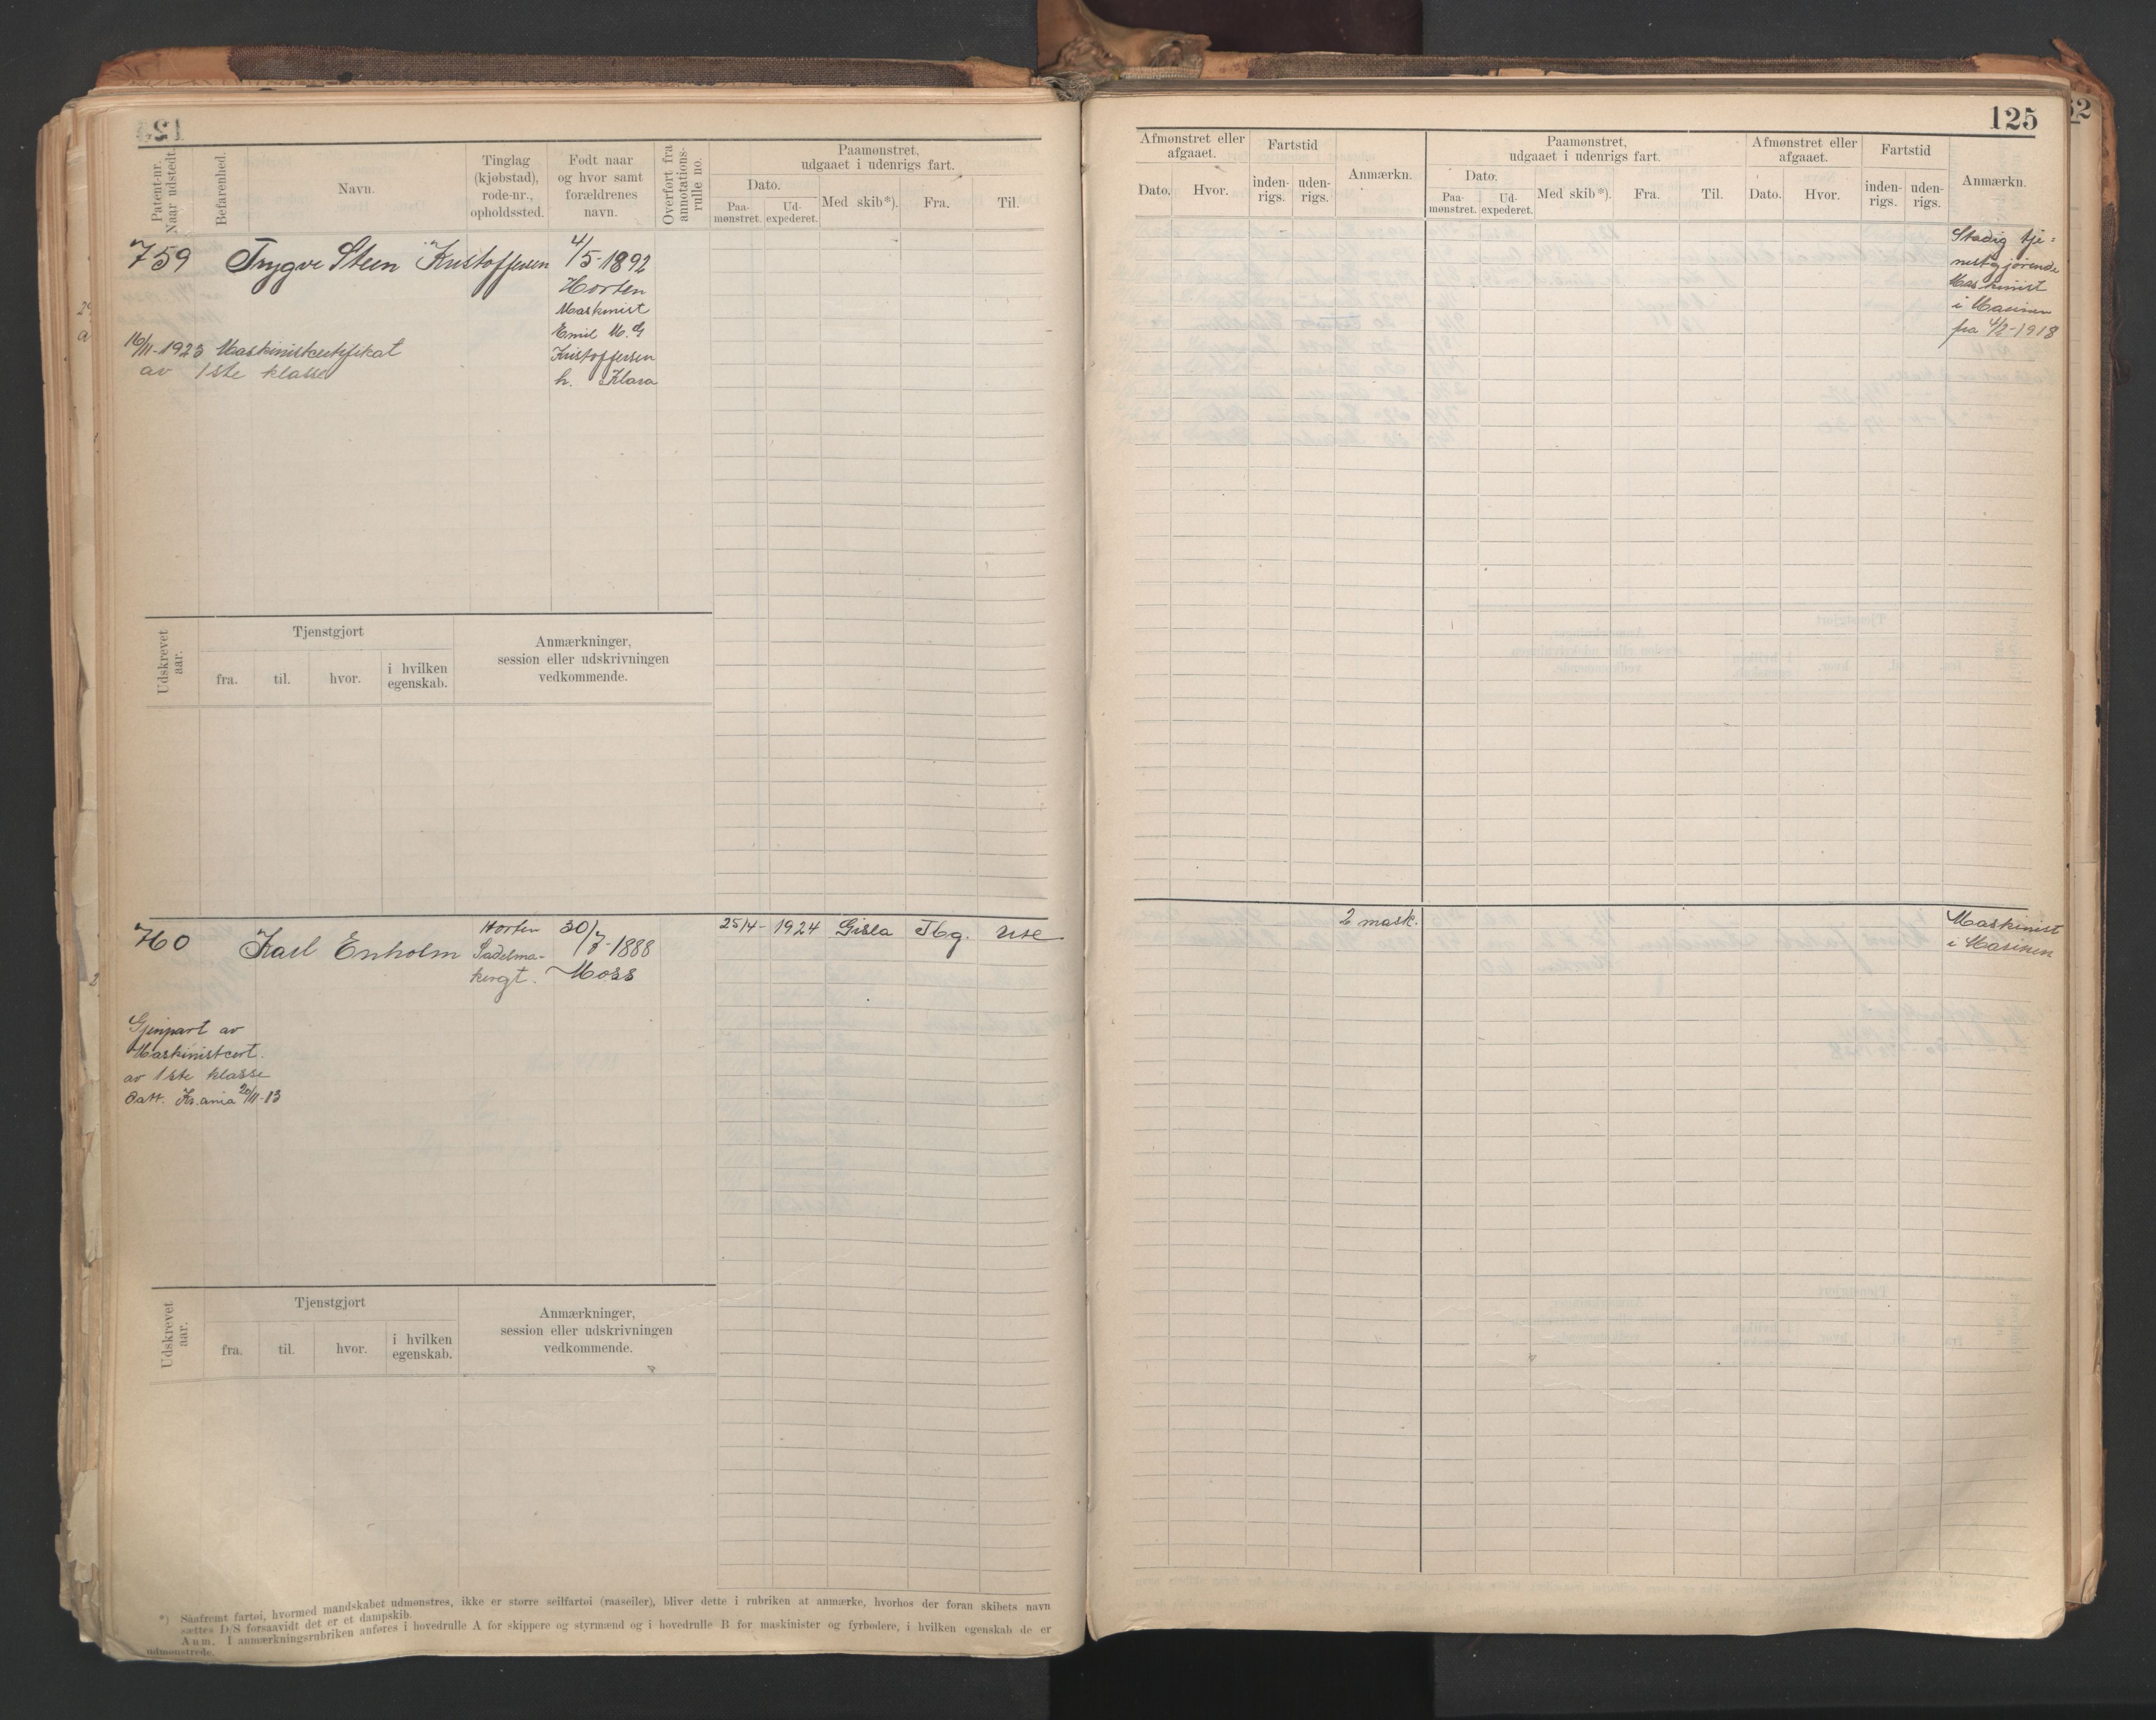 125
Patent-nr.
Naar udstedt.
Befarenhed.
Navn.
Tinglag
(kjøbstad),
rode-nr.,
opholdssted.
Født naar
og hvor samt
forældrenes
navn.
Overført fra
annotations-
rulle no.
Paamønstret,
udgaaet i udenrigs fart.
Dato.
Paa-
mønstret.
Ud-
expederet.
Med skib*).
Fra.
Til.
Afmønstret eller
afgaaet.
Dato.
Hvor.
Fartstid
inden-
rigs.
uden-
rigs.
Anmærkn.
Paamønstret,
udgaaet i udenrigs fart.
Dato.
Paa-
mønstret.
Ud-
expederet.
Med skib*).
Fra.
Til.
Afmønstret eller
afgaaet.
Dato.
Hvor.
Fartstid
inden-
rigs.
uden-
rigs.
Anmærkn.
759
Trygve Steen Kristoffersen
4/5-1892
Horten
Maskinist
Emil M. G
Kristoffersen
h. Klara
16/11-1923 Maskinistcertifikat
av 1ste klasse
Stadig tje=
nestgjørende
Maskinist
i Marinen
fra 4/2-1918
Udskrevet
aar.
Tjenstgjort
fra.
til.
hvor.
i hvilken
egenskab.
Anmærkninger,
session eller udskrivningen
vedkommende.
760
Karl Enholm
Horten
Sadelma-
kergt.
30/7-1888
Moss
25/4- 1924 Gisla Tbg. Use
2 mask.
Maskinist
i Marinen
Gjenpart av
Maskinistcert.
av 1ste klasse
Datt. Kr.ania 20/11-13
Udskrevet
aar.
Tjenstgjort
fra.
til.
hvor.
i hvilken
egenskab.
Anmærkninger,
session eller udskrivningen
vedkommende.
*) Saafremt fartøi, hvormed mandskabet udmønstres, ikke er større seilfartøi (raaseiler), bliver dette i rubriken at anmærke, hvorhos der foran skibets navn
sættes D/S forsaavidt det er et dampskib.
Anm. I anmærkningsrubriken anføres i hovedrulle A for skippere og styrmænd og i hovedrulle B for maskinister og fyrbødere, i hvilken egenskab de er
udmønstrede.